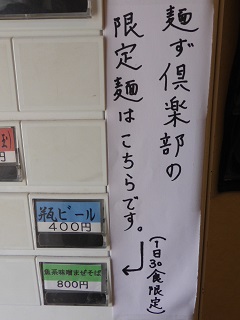 麺ず倶楽部の
限定麺はこちらです。
(1日30食限定)
円
瓶ビール
400円
魚系味噌まぜそば
800円